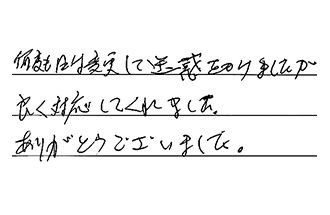 何度も日は変更して迷惑をかけましたが
良く対応してくれました。
ありがとうございました。